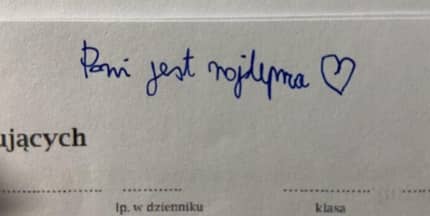 Pani jest najlepsza ♡
ujących
lp. w dzienniku klasa